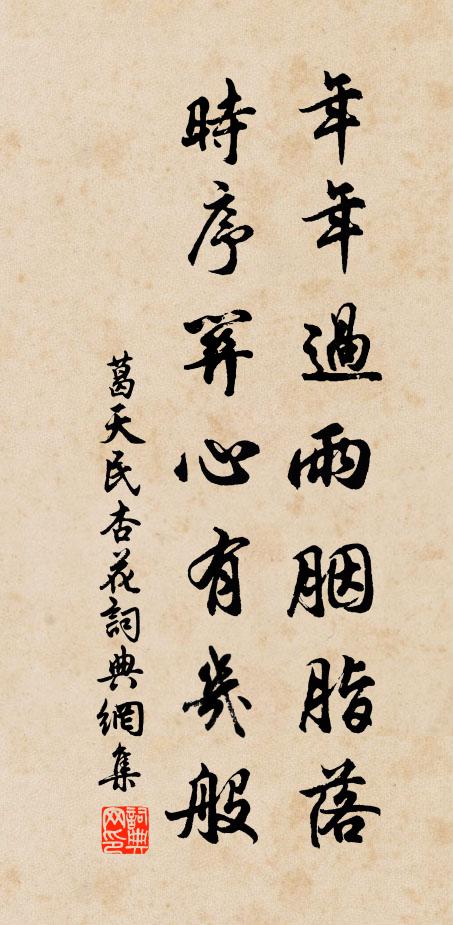 年年過雨胭脂落
時序關心有幾般
葛天民杏花詞典網集
詞典网印